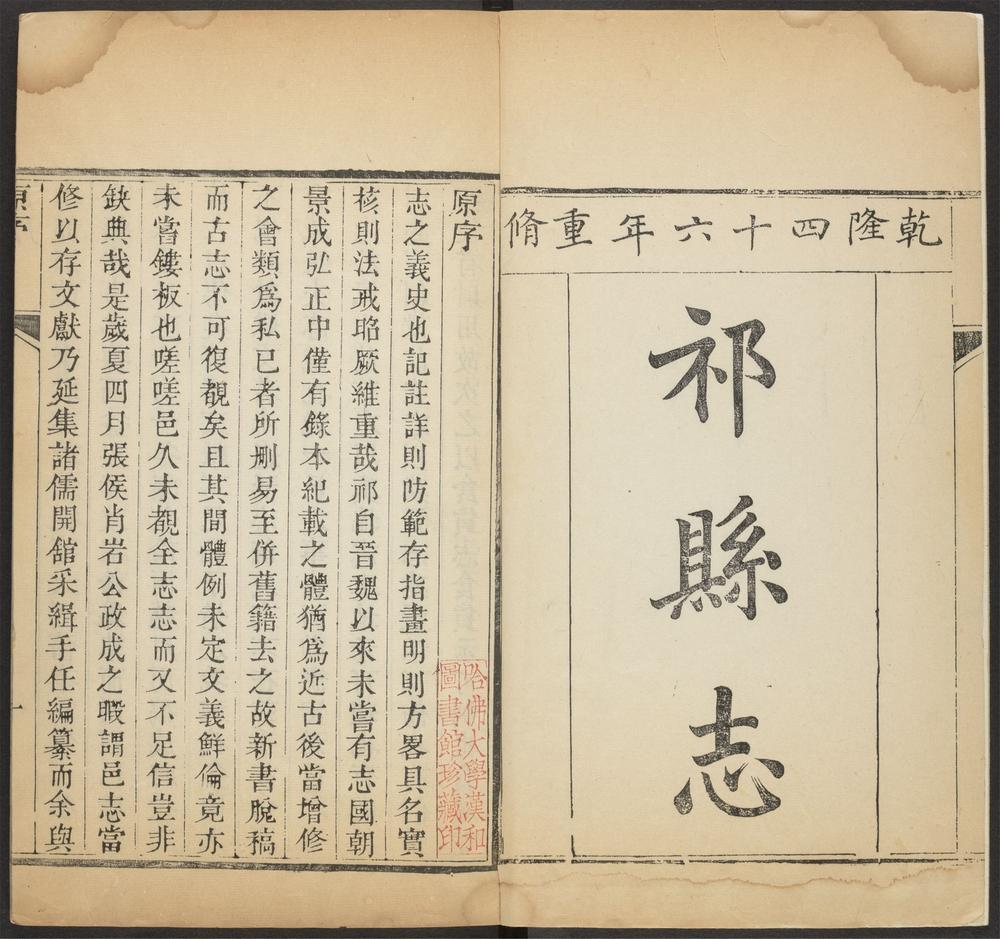 乾隆四十六年重脩
祁縣志
原序
志之義史也記註詳則防範存指畫明則方畧具名實
核則法戒昭厥維重哉祁自晉魏以來未嘗有志國朝
景成弘正中僅有錄本紀載之體猶爲近古後當增修
之會類爲私已者所刪易至併舊籍去之故新書脫稿
而古志不可復覩矣且其間體例未定文義鮮倫竟亦
未嘗鏤板也嗟嗟邑久未覩全志志而又不足信豈非
缺典哉是歲夏四月張侯肖岩公政成之暇謂邑志當
修以存文獻乃延集諸儒開舘采緝手任編纂而余與
原序
一
哈佛大學漢和
圖書館珍藏印